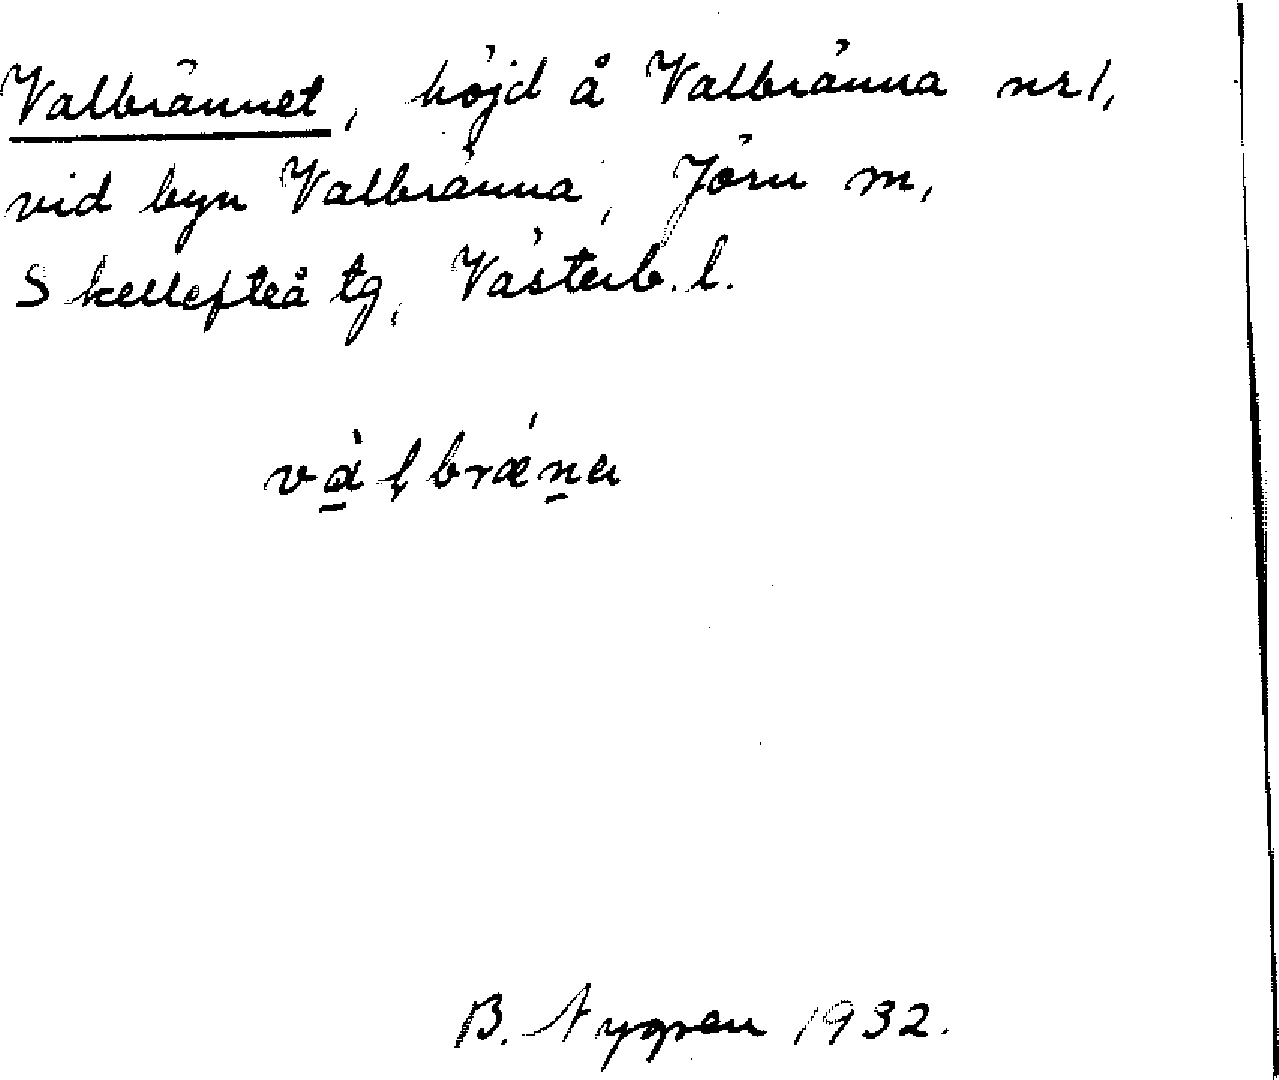 Valbrännet, höjd å Valbränna nr 1,
vid byn Valbränna, Jörn m,
Skellefteå tg, Västerb. l.
B. Nygren 1932.